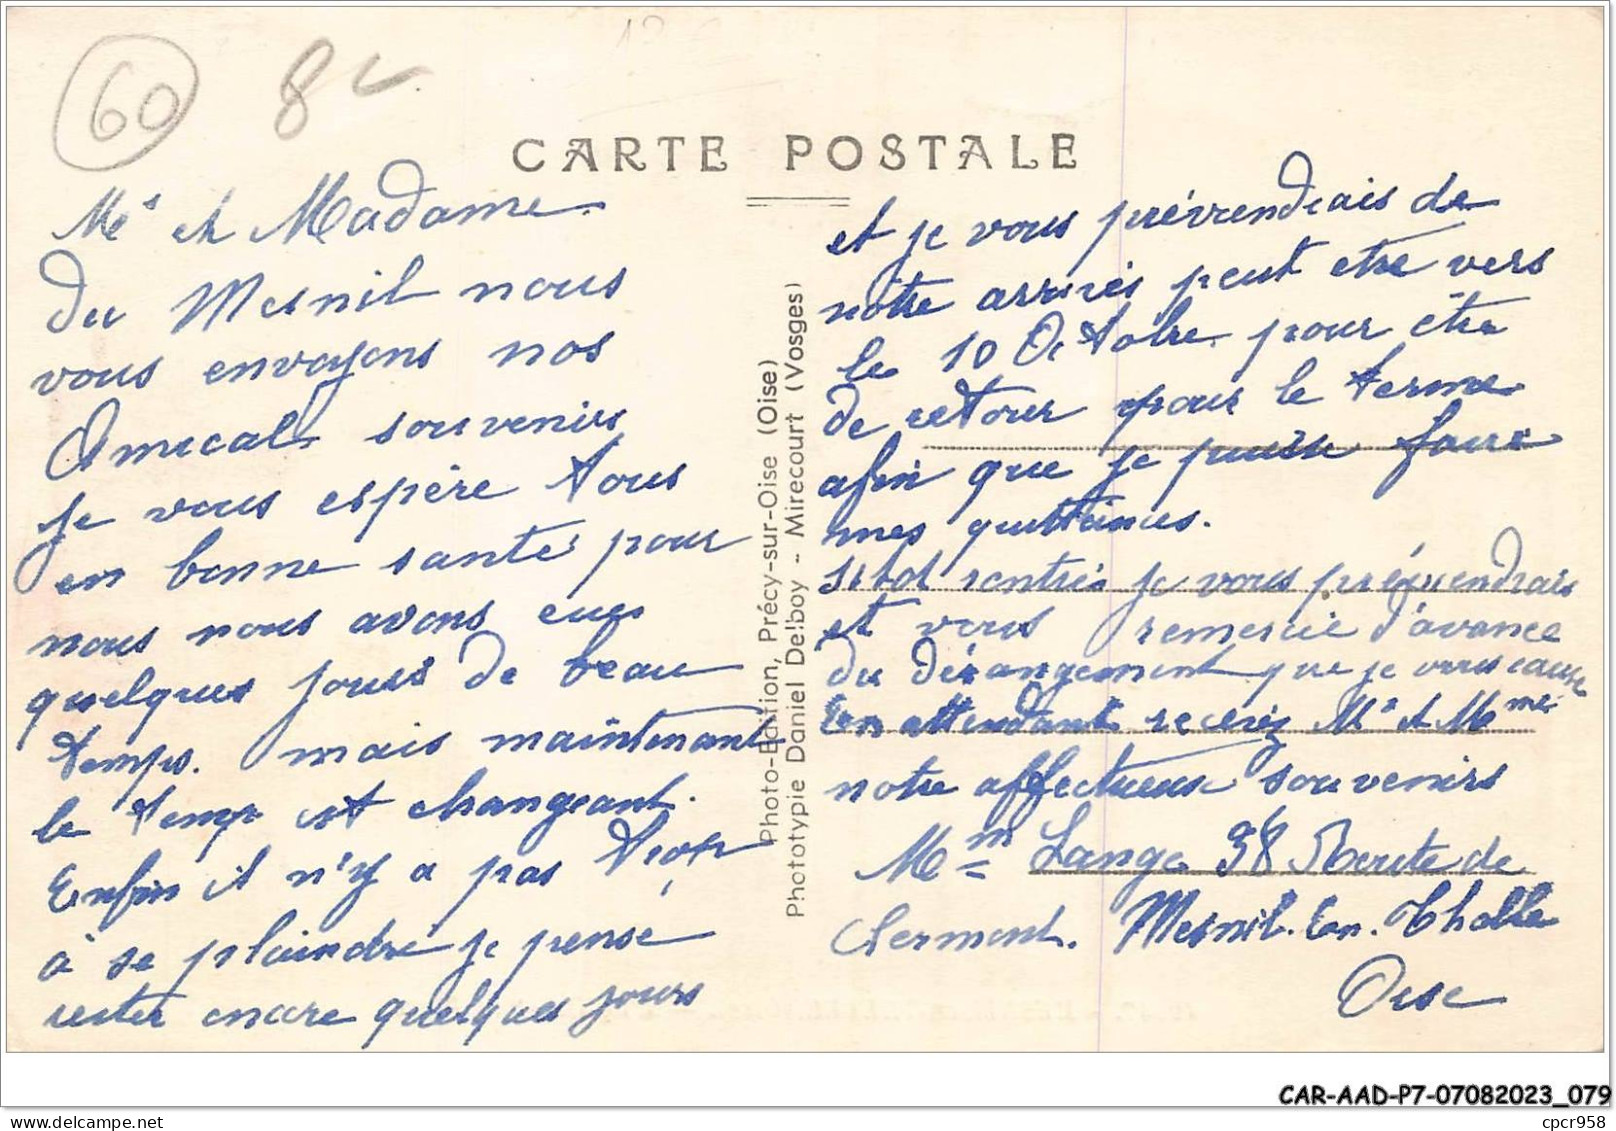 60 8
CARTE POSTALE
Mr et Madame.
Du Mesnil nous
vous envoyons nos
Amical souvenirs
je vous espère tous
en bonne santé pour
nous nous avons eues
quelques jours de beau
temps. mais maintenant
le temp est changeant.
Enfin il n'y a pas trop
à se plaindre je pense
rester encore quelques jours
Photo-Edition, Précy-sur-Oise (Oise)
Phototypie Daniel Delboy - Mirecourt (Vosges)
et je vous prévrendrais de
nôtre arrivés peut etre vers
le 10 Octobre pour être
de retour pour le terme
afin que je puisse faire
mes quittances.
sitot rentrés je vous préviendrais
et vous remercie d'avance
du dérangement que je vous cause
En attendant recevez Mr et Mme
notre affectueux souvenirs
Mm Lange 98 Route de
Clermont. Mesnil. En. Thelle
Oise
CAR-AAD-P7-07082023_079
cpcr958